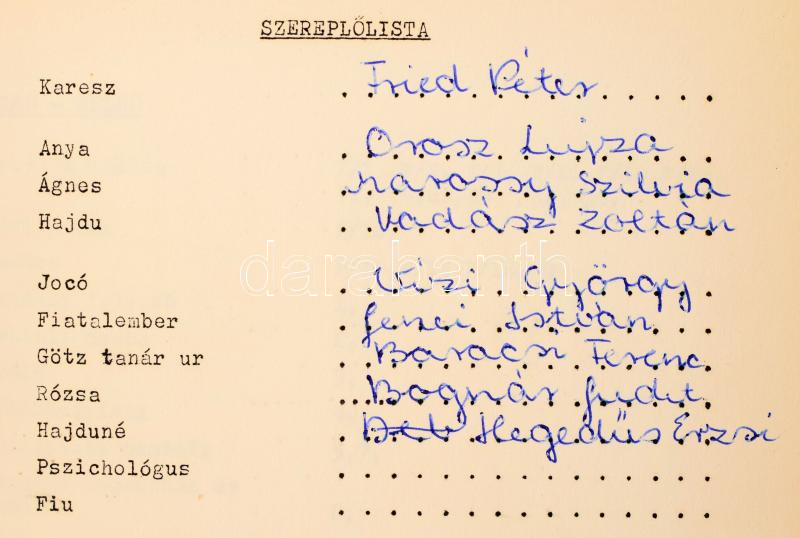 SZEREPLŐLISTA
Karesz . Fried Péter
Anya . Orosz Lujza
Ágnes Marossy Szilvia
Hajdu . Vadász Zoltán
darabanth
Jocó . Vizi György
Fiatalember . Jenei István
Götz tanár ur . Baracsi Ferenc
Rózsa Bognár Judit
Hajduné . Hegedűs Erzsi
Pszichológus . . . . . . . . . . . . . . . . .
Fiu . . . . . . . . . . . . . . . . .